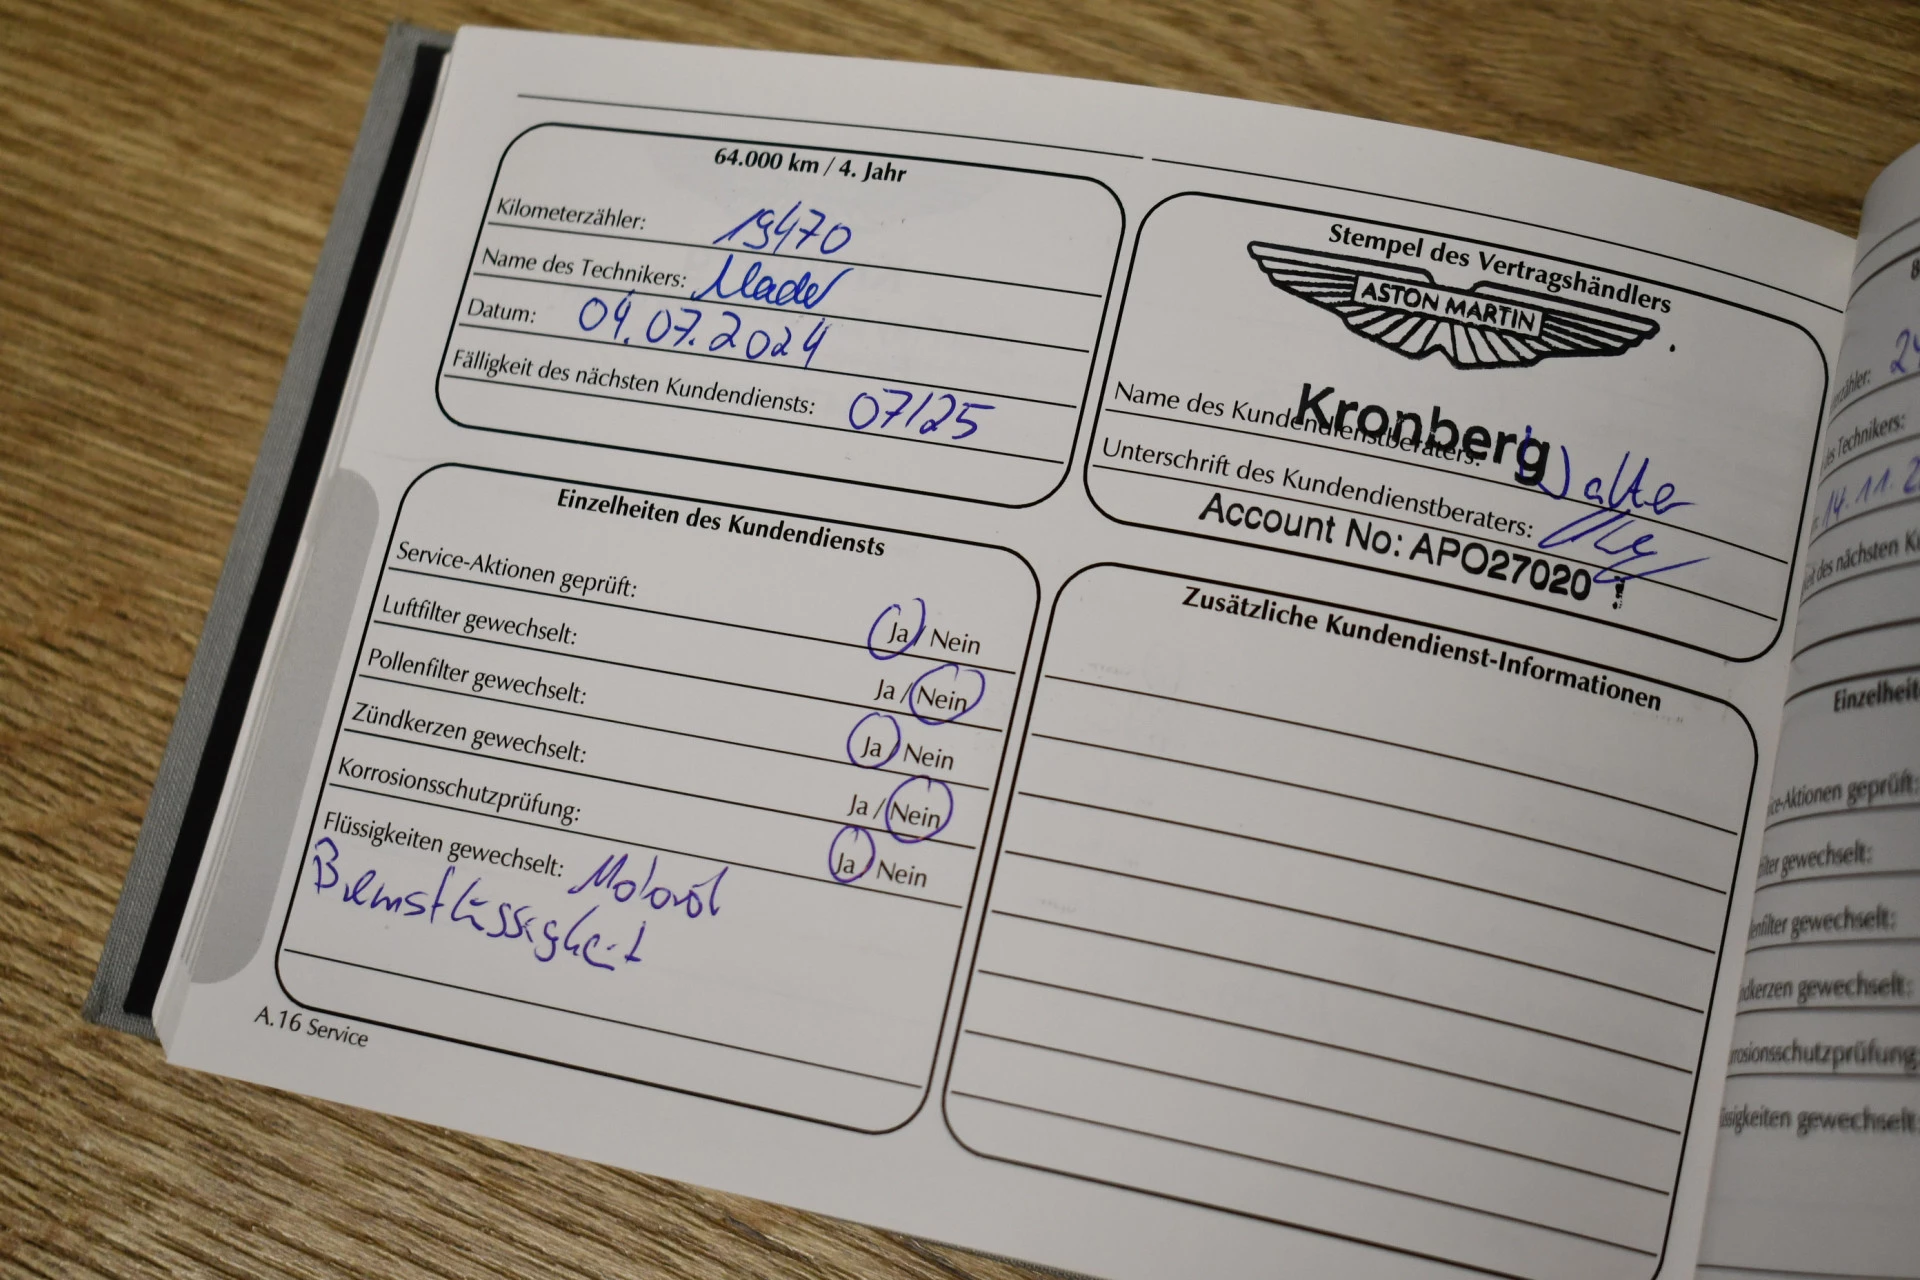 64.000 km / 4. Jahr
Kilometerzähler: 19470
Name des Technikers: Mader
Datum: 04.07.2024
Fälligkeit des nächsten Kundendiensts: 07/25
Stempel des Vertragshändlers
ASTON MARTIN
Kronberg
Name des Kundendienstberaters: Walter
Unterschrift des Kundendienstberaters:
Account No: APO27020
Einzelheiten des Kundendiensts
Service-Aktionen geprüft: Ja / Nein
Luftfilter gewechselt: Ja / Nein
Pollenfilter gewechselt: Ja / Nein
Zündkerzen gewechselt: Ja / Nein
Korrosionsschutzprüfung: Ja / Nein
Flüssigkeiten gewechselt: Motoröl
Bremsflüssigkeit
Zusätzliche Kundendienst-Informationen
A.16 Service
Technikers:
14.11.2
des nächsten Ku
Einzelheit
ce-Aktionen geprüft:
filter gewechselt:
lenfilter gewechselt:
ndkerzen gewechselt:
rosionsschutzprüfung:
ssigkeiten gewechselt: